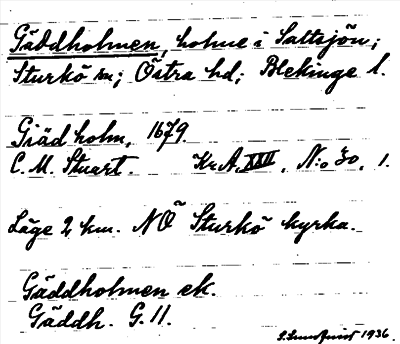 Gäddholmen, holme i Saltsjön;
Sturkö sn; Östra hd; Blekinge l.
Giäd holm, 1679.
C. M. Stuart. Kr.A. XXII, N:o 30, 1.
Läge 2 km. NÖ Sturkö kyrka.
Gäddholmen ek.
Gäddh. G. 11.
S. Lundquist 1936.